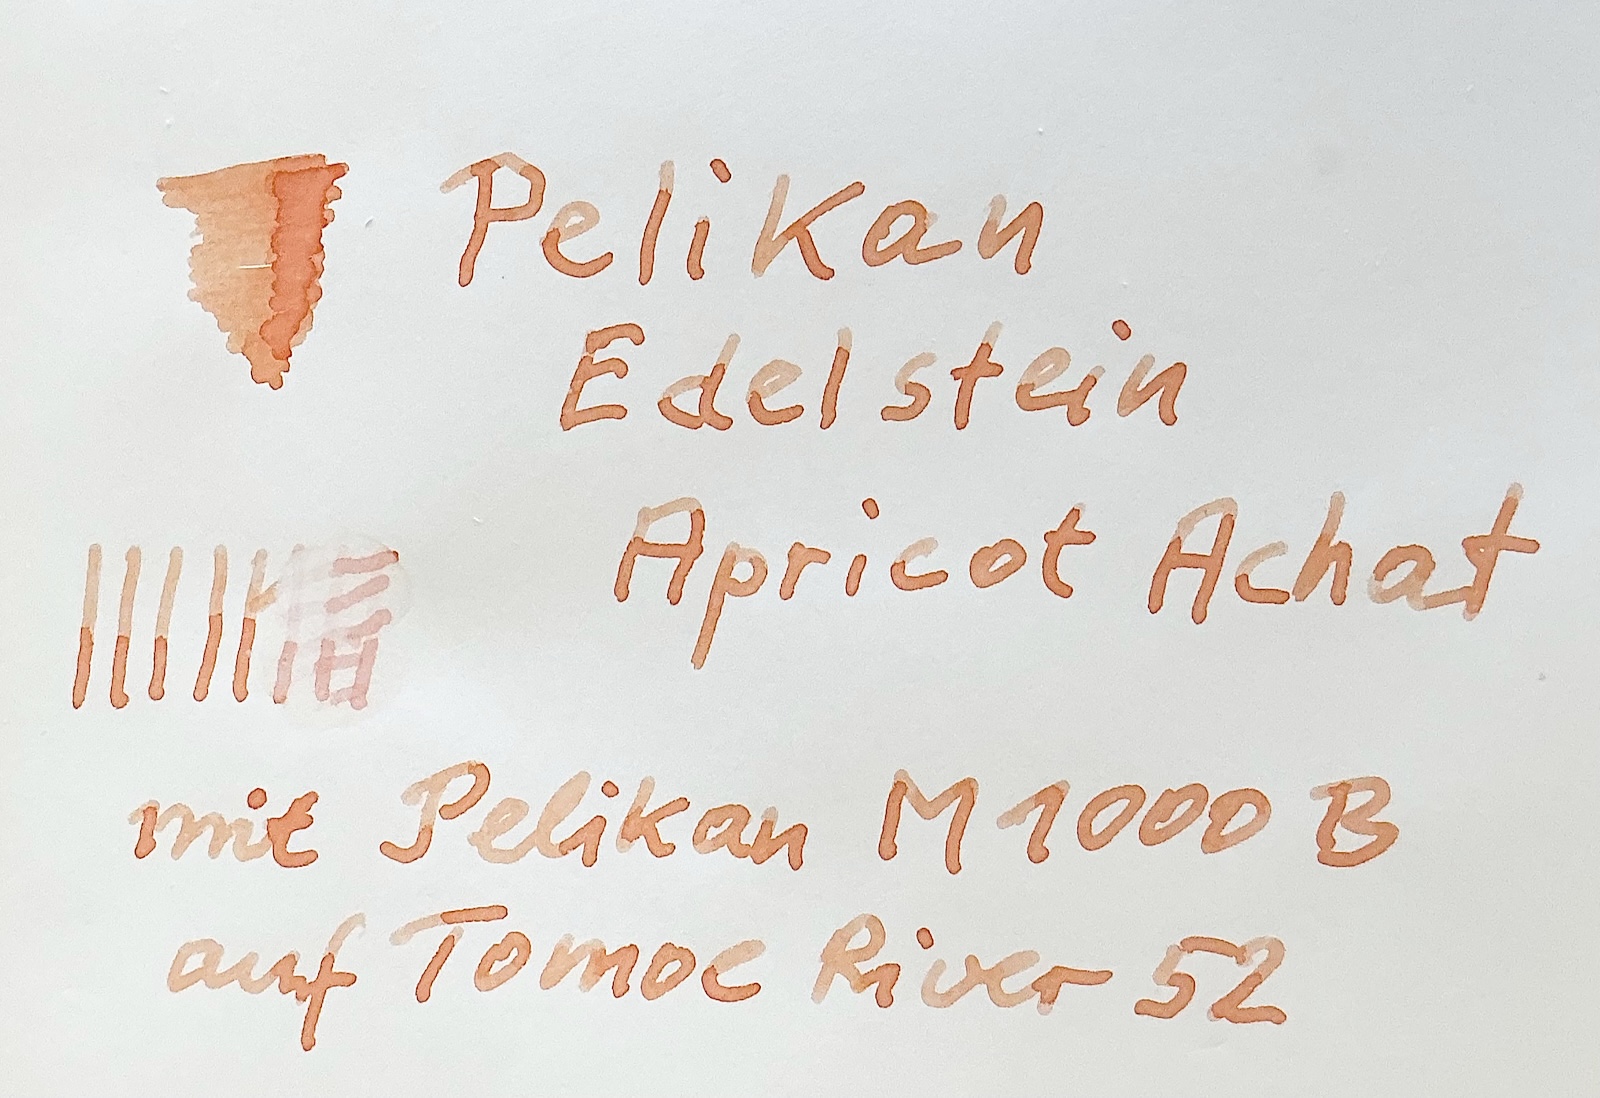 Pelikan
Edelstein
Apricot Achat
mit Pelikan M1000 B
auf Tomoe River 52